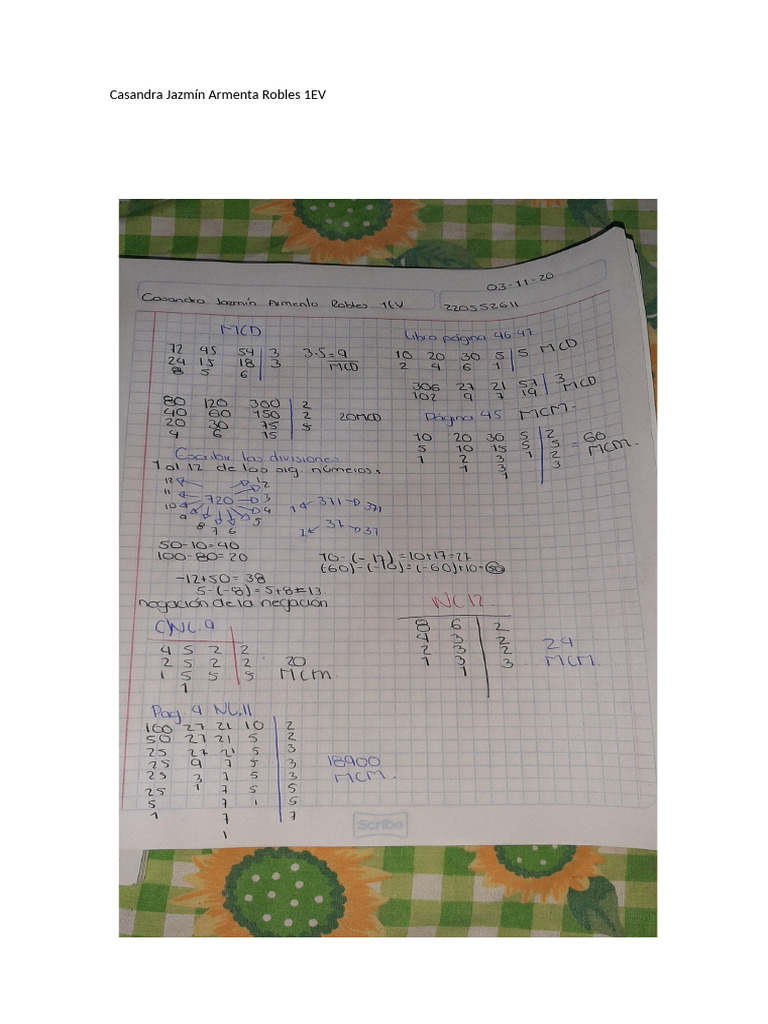 Casandra Jazmín Armenta Robles 1EV
03-11-20
Casandra Jazmín Armenta Robles 1EV
220552611
MCD
72 45 54 | 3
24 15 18 | 3
8 5 6
3·5=9
MCD
Libro página 46-47
10 20 30 5 | 5 MCD
2 4 6 1
306 27 21 57 | 3 MCD
102 9 7 19
80 120 300 | 2
40 60 150 | 2
20 30 75 | 5
4 6 15
20 MCD
Página 45 MCM-
10 20 30 5 | 2
5 10 15 5 | 5
1 2 3 1 | 2
1 3 | 3
1
=60
MCM.
Escribir las divisiones
1 al 12 de los sig. números:
720
12 11 10 9 8 7 6 5 4 3 2 1
1 371 371
1 37 37
50-10=40
100-80=20
-12+50=38
5-(-8)=5+8=13
10-(-17)=10+17=27
(-60)-(-10)=(-60)+10=-50
negación de la negación
NC.9
4 5 2 | 2
2 5 2 | 2
1 5 5 | 5
1
20
MCM
NC12
8 6 | 2
4 3 | 2
2 3 | 2
1 3 | 3
1
24
MCM.
Pag. 9 NC.11
100 27 21 10 | 2
50 27 21 5 | 2
25 27 21 5 | 3
25 9 7 5 | 3
25 3 7 5 | 3
25 1 7 5 | 5
5 7 1 | 5
1 7 | 7
1
18900
MCM.
Scribe